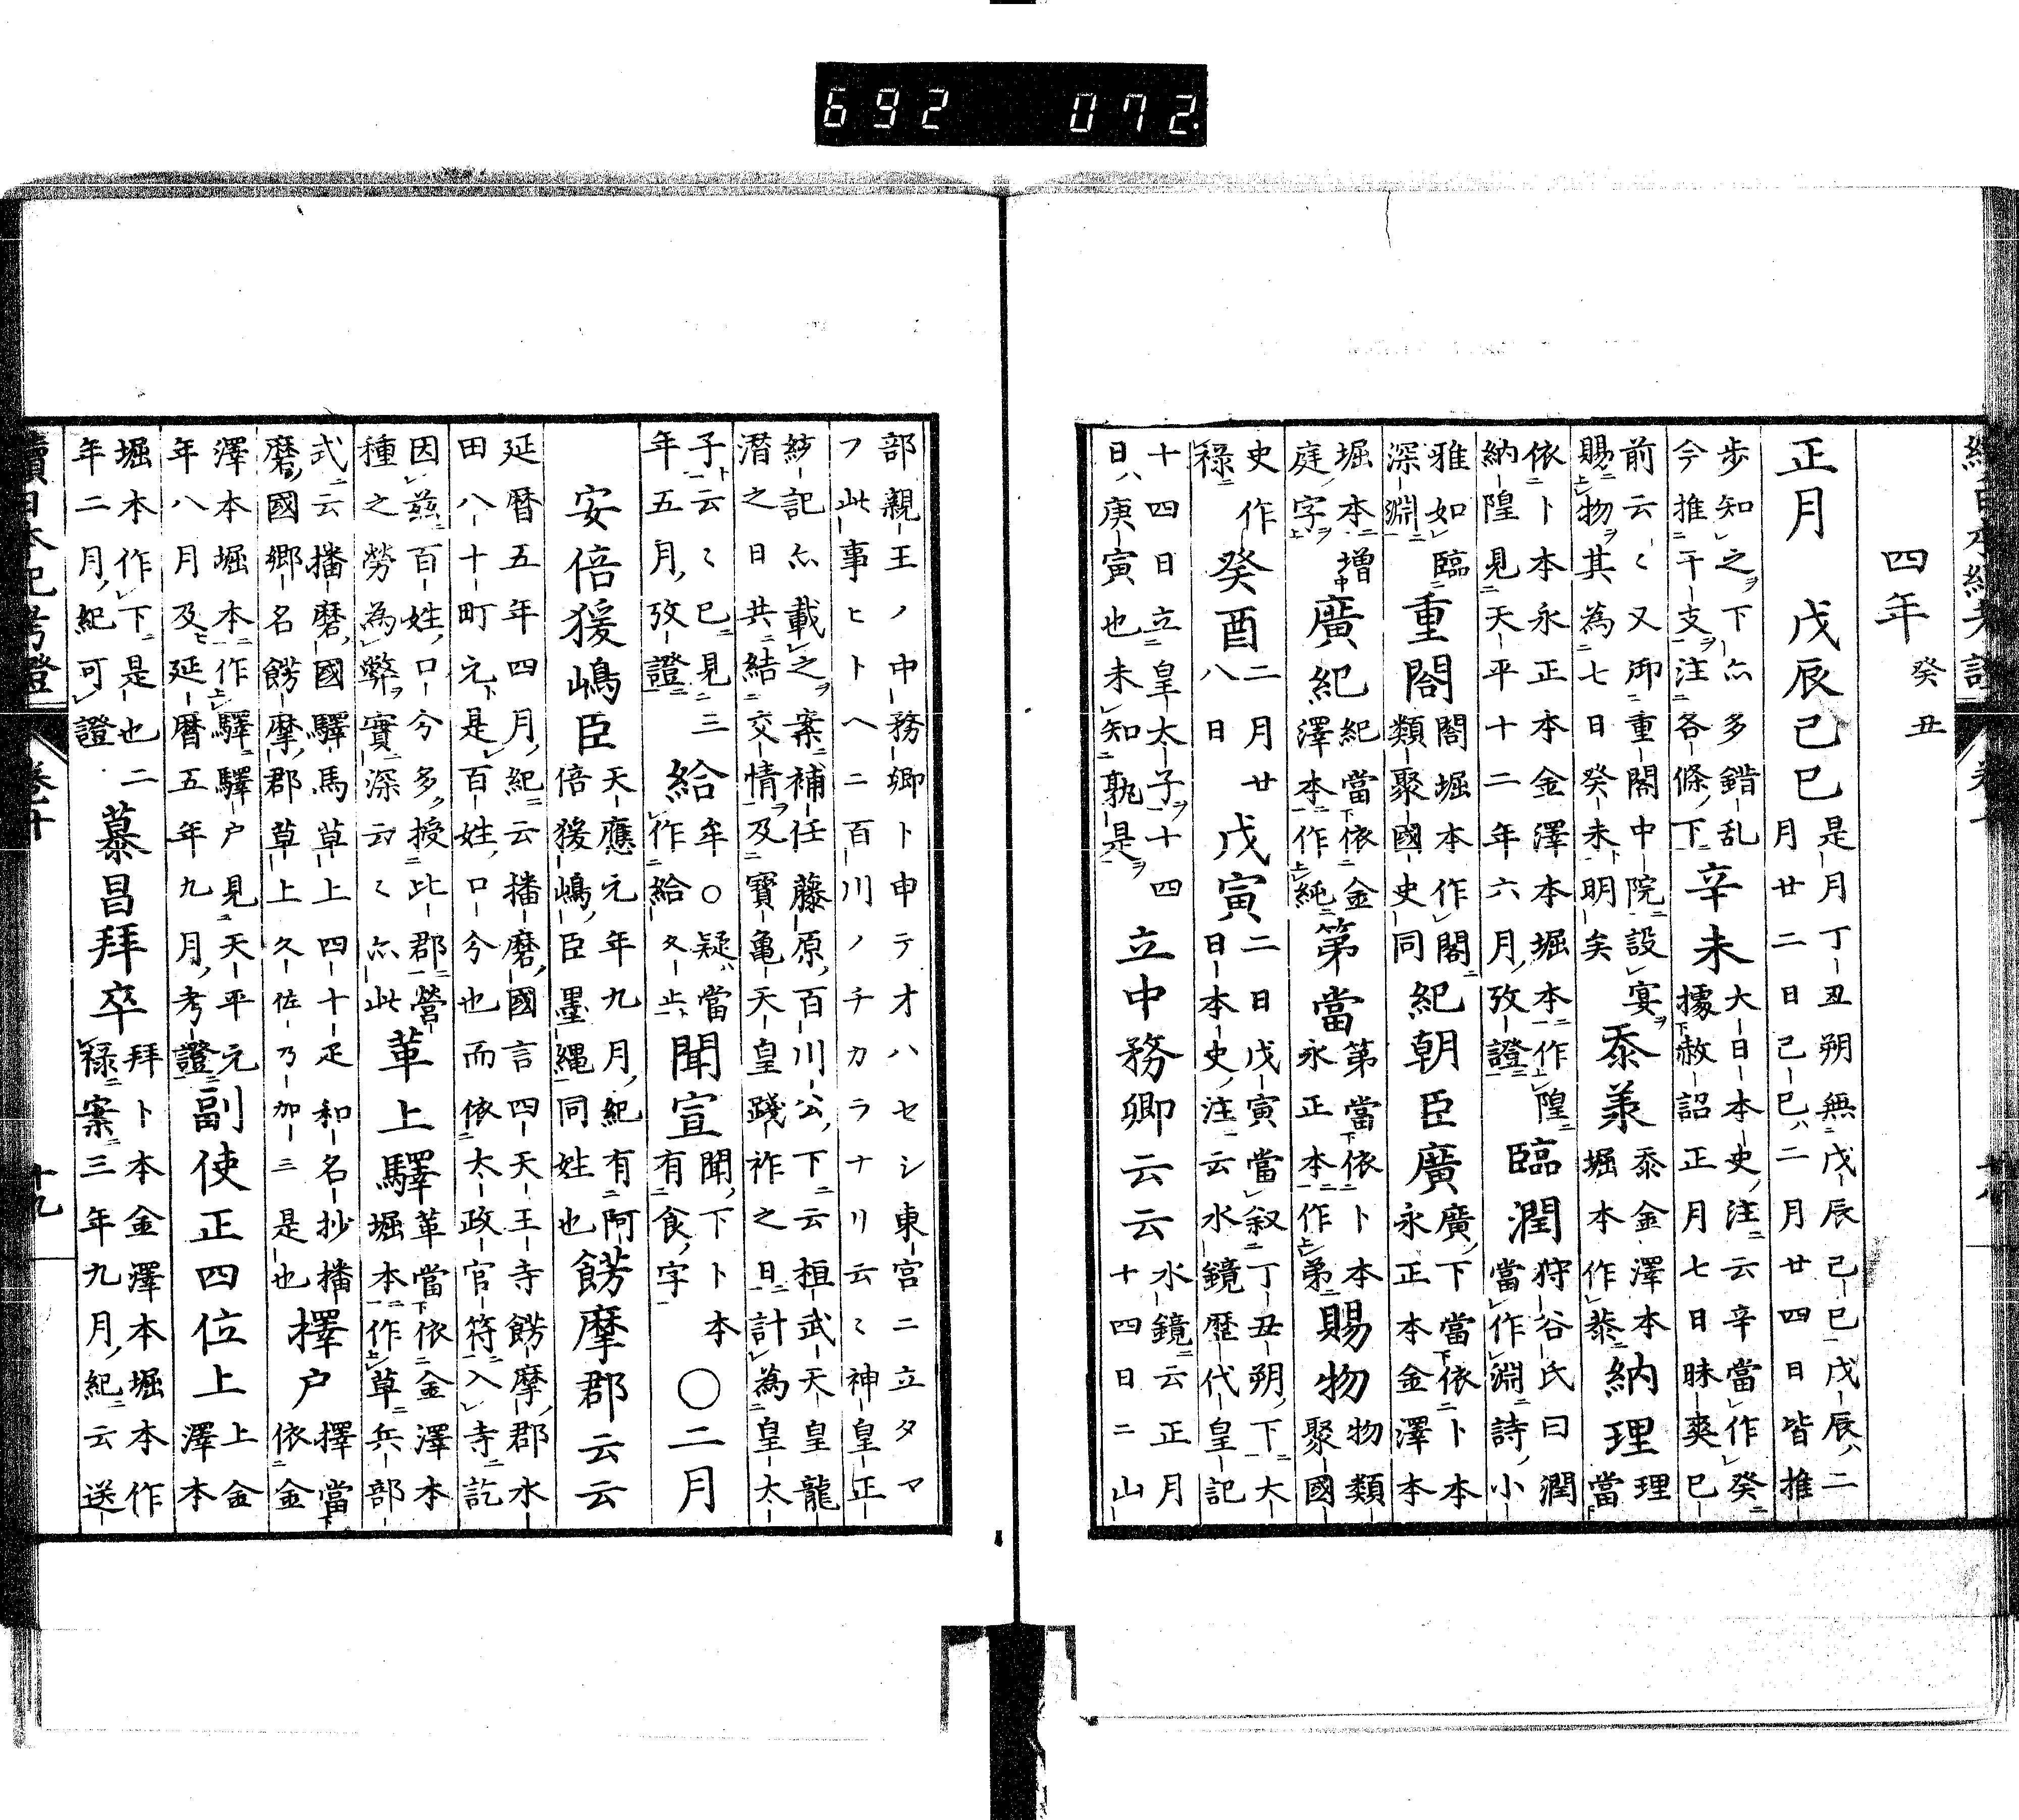 692 072.
四年癸丑
正月 戊辰己巳 是月丁丑朔無戊辰己巳戊辰ハ二
月廿二日己巳ハ二月廿四日皆推
歩知之下亦多錯乱
今推干支注各條下 辛未 大日本史注云辛當作癸
據赦詔正月七日昧爽巳
前云〻又御重閣中院設宴
賜物其為七日癸未明矣 黍羕 黍金澤本
堀本作㤗 納理 理當
依卜本永正本金澤本堀本作隍
納隍見天平十二年六月攷證 臨潤 狩谷氏曰潤
當作淵詩小
雅如臨
深淵 重閤 閤堀本作閣
類聚國史同 紀朝臣廣 廣下當依卜本
永正本金澤本
堀本増
庭字 廣紀 紀當依金
澤本作純 第當 第當依卜本
永正本作弟 賜物 物類
聚國
史作
祿 癸酉 二月廿
八日 戊寅 二日戊寅當叙丁丑朔下大
日本史注云水鏡歴代皇記
十四日立皇太子十四
日ハ庚寅也未知孰是 立中務卿云云 水鏡云正月
十四日ニ山
部親王ノ中務卿ト申テオハセシ東宮ニ立タマ
フ此事ヒトヘニ百川ノチカラナリ云〻神皇正
統記亦載之案補任藤原百川公下云桓武天皇龍
潜之日共結交情及寶亀天皇踐祚之日計為皇太
子云〻已見三
年五月攷證 給 牟○疑當
作給攵止 聞宣 聞下卜本
有食字 ○二月
安倍猨嶋臣 天應元年九月紀有阿
倍猨嶋臣墨縄同姓也 餝摩郡云云
延暦五年四月紀云播磨國言四天王寺餝摩郡水
田八十町元是百姓口今也而依太政官符入寺訖
因茲百姓口今多授比郡營
種之勞為弊實深云〻亦此 革上驛 革當依金澤本
堀本作草兵部
式云播磨國驛馬草上四十疋和名抄播
磨國郷名餝摩郡草上久佐乃加三是也 擇户 擇當
依金
澤本堀本作驛驛户見天平元
年八月及延暦五年九月考證 副使正四位上 上金
澤本
堀本作下是也二
年二月紀可證 慕昌拜卒 拜卜本金澤本堀本作
祿案三年九月紀云送